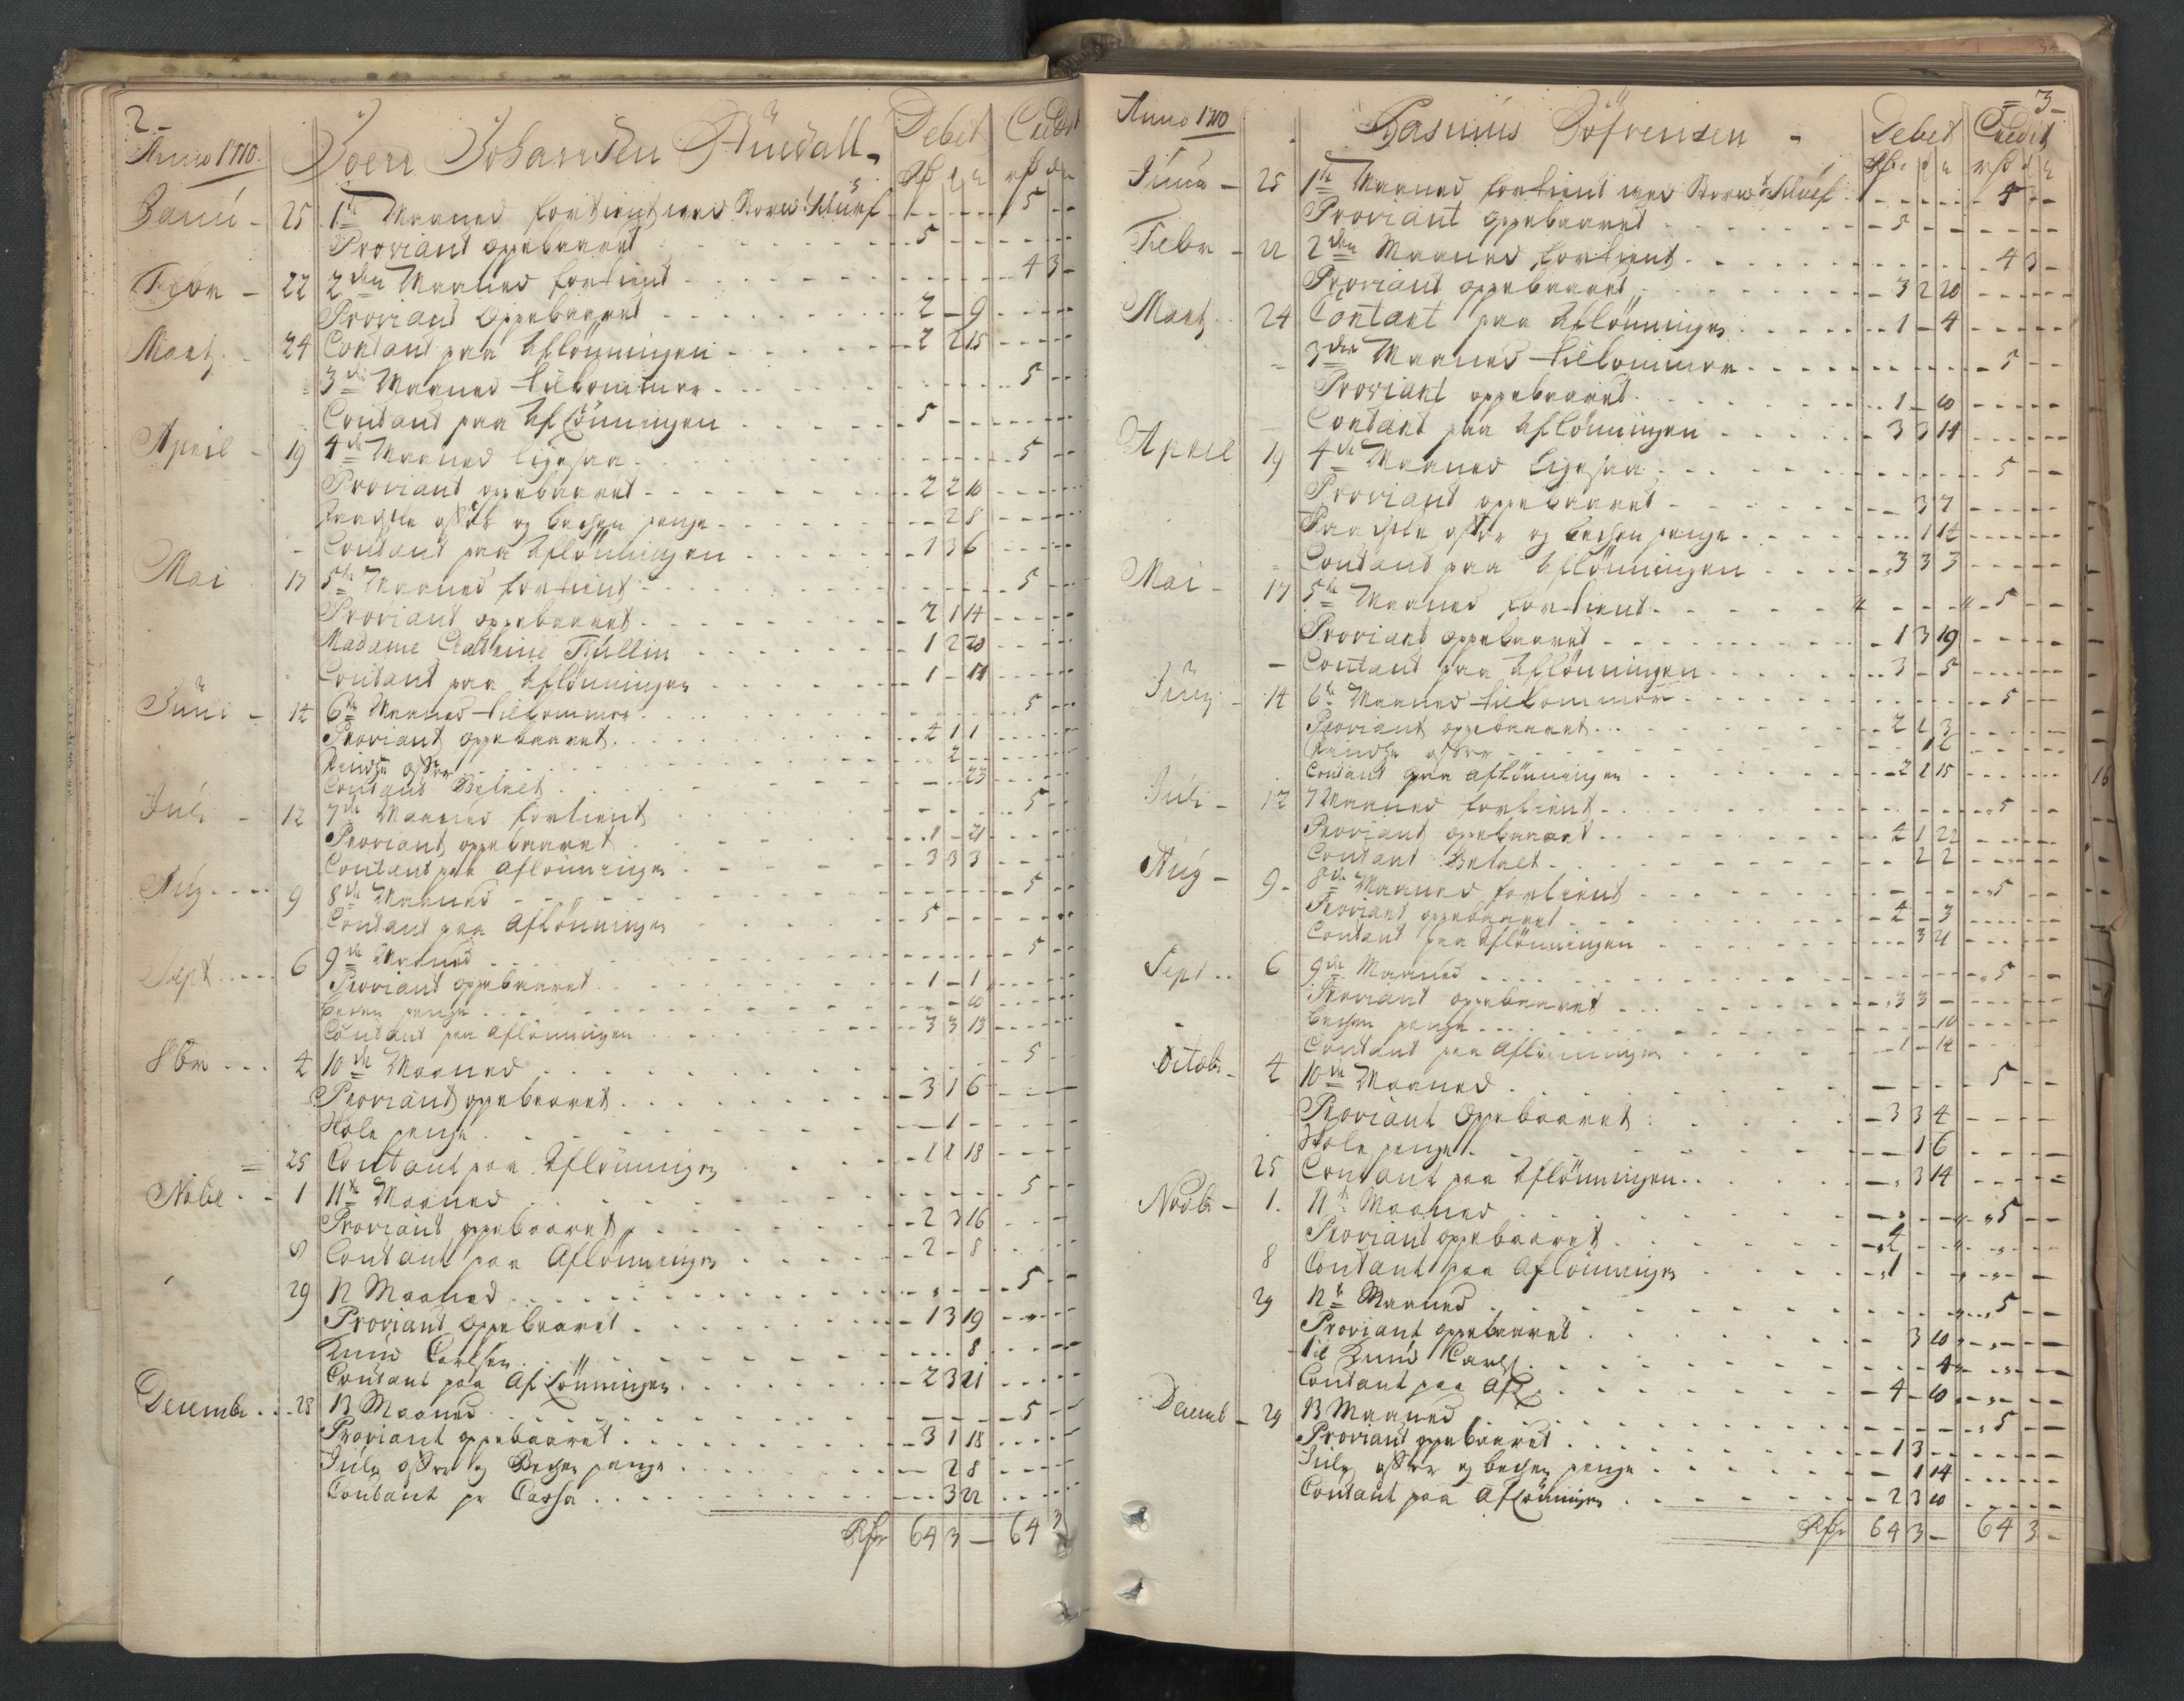 2
Anno 1710. Joen Johansen Debet Credit
Janu 25 1te Maaned fortient med 5
Proviant oppebaaret 5
Febr 22 2den Maaned fortient 4 3
Proviant oppebaaret 2 - 9
Mart 24 Contant paa Aflönningen 2 2 15
3die Maaned tilkommer 5
Contant paa Aflönningen 5
April 19 4de Maaned ligesaa 5
Proviant oppebaaret 2 2 10
Paaske offer og bechen penge 2 8
Contant paa Aflönningen 1 3 6
Mai 17 5te Maaned fortient 5
Proviant oppebaaret 2 1 14
Madame Cathrine 1 2 20
Contant paa Aflönningen 1 - 14
Juni 14 6te Maaned tilkommer 5
Proviant oppebaaret 4 1 1
Pindse offer 2
Contant Betalt 23
Juli 12 7de Maaned fortient 5
Proviant oppebaaret 1 - 21
Contant paa Aflönningen 3 3 3
Aug 9 8de Maaned 5
Contant paa Aflönningen 5
Sept 6 9de Maaned 5
Proviant oppebaaret 1 - 1
bechen penge 10
Contant paa Aflönningen 3 3 13
8br 4 10de Maaned 5
Proviant oppebaaret 3 1 6
Hole penge 1
25 Contant paa Aflönningen 1 1 18
1 11te Maaned 5
Proviant oppebaaret 2 3 16
8 Contant paa Aflönningen 2 - 8
29 12 Maaned 5
Proviant oppebaaret 1 3 19
Knud Carlsen 8
Contant paa Aflönningen 2 3 21
Decembr 28 13 Maaned 5
Proviant oppebaaret 3 1 18
Jule offer og Bechen penge 2 8
Contant pr Cassa 3 22
Rdr 64 3 - 64 3
3
Anno 1710 Rasmus Söfrensen Debet Credit
25 1te Maaned fortient med
Proviant oppebaaret 5
Febr 22 2den Maaned fortient 4 3
Proviant oppebaaret 3 2 20
Mart 24 Contant paa Aflönningen 1 - 4
3die Maaned tilkommer 5
Proviant oppebaaret 1 - 10
Contant paa Aflönningen 3 3 14
April 19 4de Maaned ligesaa 5
Proviant oppebaaret 3 7
Paaske offer og bechen penge 1 14
Contant paa Aflönningen 3 3 3
Mai 17 5te Maaned fortient 5
Proviant oppebaaret 1 3 19
Contant paa Aflönningen 3 - 5
Juny 14 6te Maaned tilkommer 5
Proviant oppebaaret 2 1 3
Pindse offer
Contant paa aflönningen 2 1 15
Juli 12 7 Maaned fortient 5
Proviant oppebaaret 4 1 22
Contant Betalt 2 2
Aug 9 8de Maaned fortient 5
Proviant oppebaaret 4 - 3
Contant paa Aflönningen 3 21
Sept 6 9de Maaned 5
Proviant oppebaaret 3 3
bechen penge 10
Contant paa Aflönningen 1 - 14
Octobr 4 10de Maaned 5
Proviant Oppebaaret 3 3 4
Hole penge 1 6
25 Contant paa Aflönningen 3 14
1. 11te Maaned 5
Proviant oppebaaret 4
8 Contant paa Aflönningen 1
29 12te Maaned 5
Proviant oppebaaret 3 10
til Knud Carls.
Contant paa Afl 4 - 10
Decemb 29 13 Maaned 5
Proviant oppebaaret 1 3
Jule offer og bechen penge 1 14
Contant paa Aflönningen 2 3 10
Rdr 64 3 - 64 3 -
16